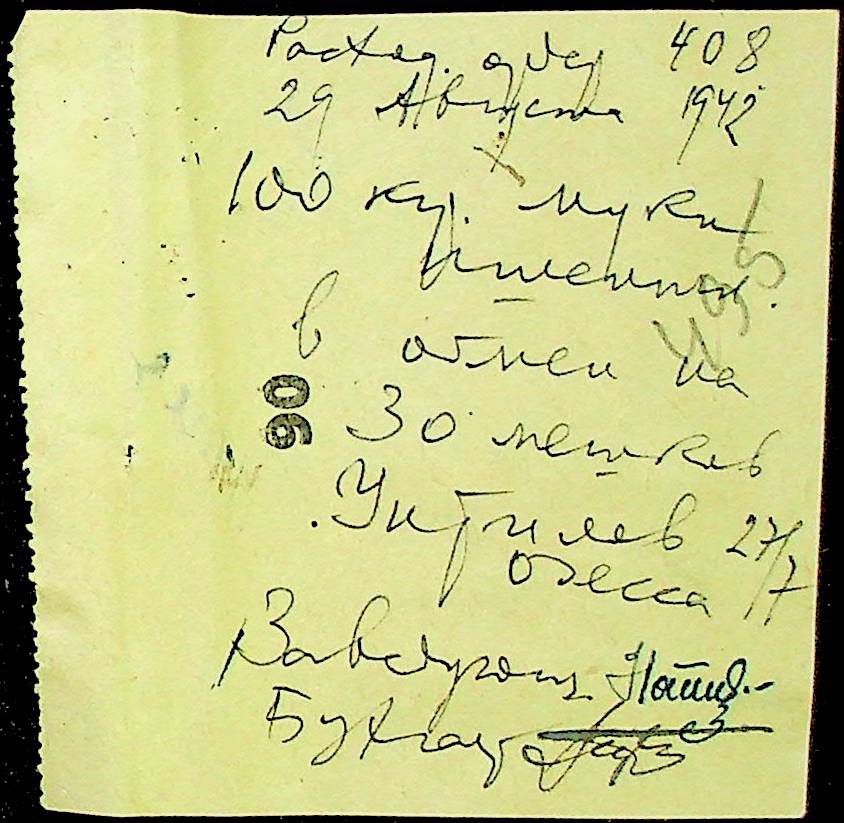 Расход. ордер 408
29 Августа 1942
100 кг. муки
пшенич.
в обмен на
30 мешков
90
27/7
Одесса
Заведующ.
Бухгалт